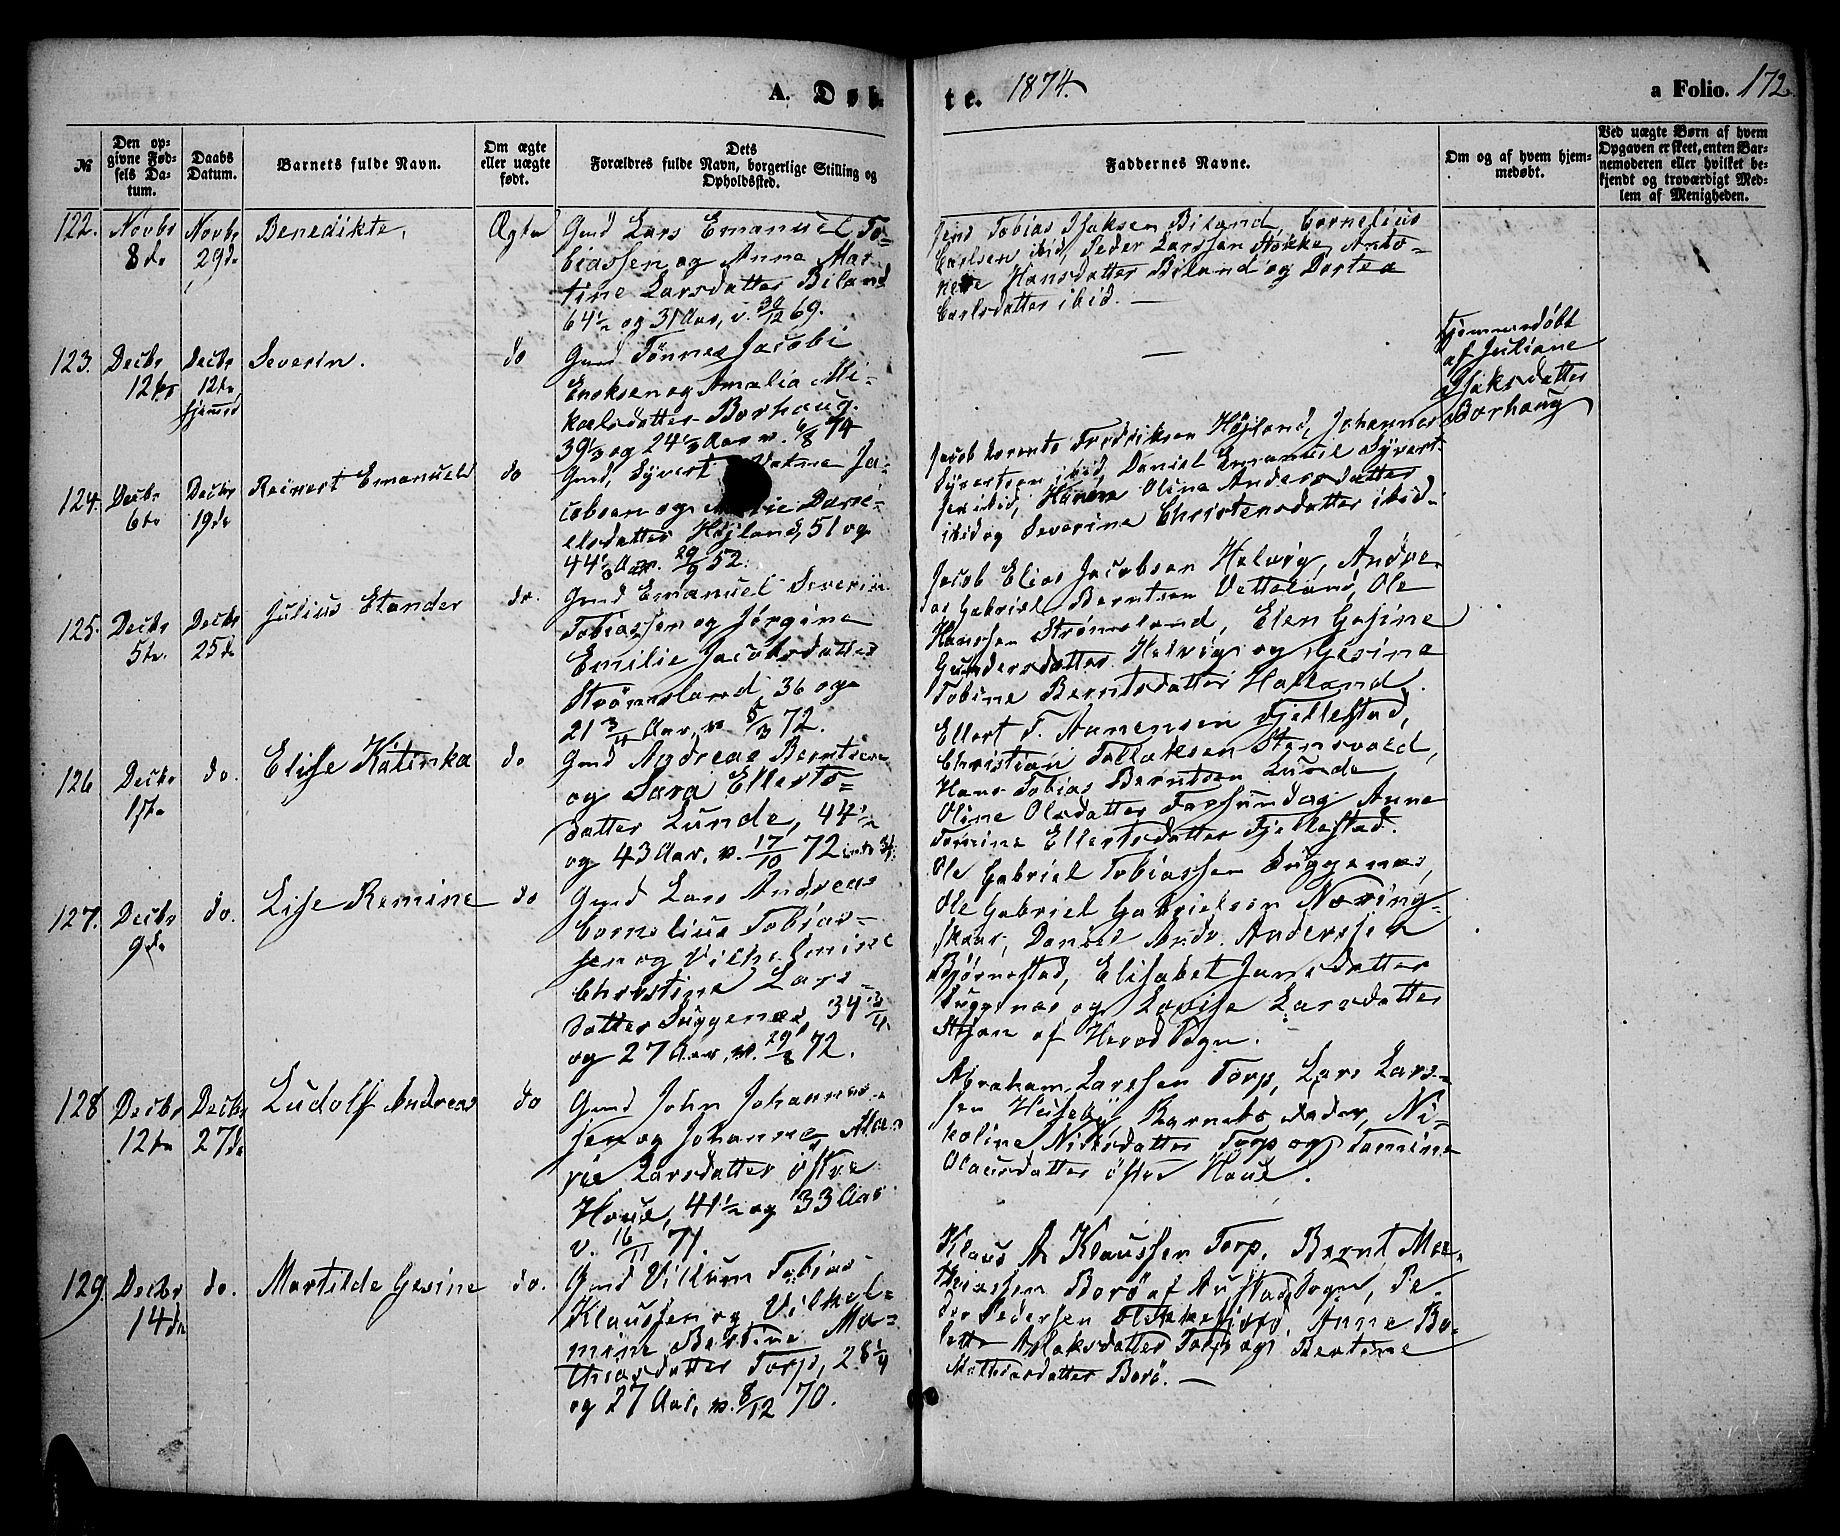 A. Døb
te. 1874.
a Folio. 172
№
Den op-
givne Fød-
sels Da-
tum.
Daabs
Datum.
Barnets fulde Navn.
Om ægte
eller uægte
født.
Dets
Forældres fulde Navn, borgerlige Stilling og
Opholdssted.
Faddernes Navne.
Om og af hvem hjem-
medøbt.
Ved uægte Børn af hvem
Opgaven er skeet, enten Bar-
nemoderen eller hvilket be-
kjendt og troværdigt Med-
lem af Menigheden.
122.
Novbr
8de
Novbr
29de
Benedikte.
Ægte
Gmd Lars Emanuel To-
biassen og Anne Mar-
tine Larsdatter Biland
64½ og 31 Aar, v. 30/12 69.
Tobias Isaksen Biland, Cornelius
Carlsen ibid, Peder Larssen Stokke, Anto-
nette Hansdatter Biland og Dortea
Carlsdatter ibid. —
123.
Decbr
12te
Decbr
12te
hjemme
Severin.
do
Gmd Tønnes Jacobi
Enoksen og Amalia Mi-
kalsdatter Borhaug.
39⅓ og 24⅓ Aar v. 6/8 74
—
Hjemmedøbt
af Juliane
Isaksdatter
Borhaug
124.
Decbr
6te
Decbr
19de
Reinert Emanuel
do
Gmd, Syvert Ja-
cobsen og Dani-
elsdatter Højland, 51 og
44 Aar. 29/9 52.
Jacob Berente Fredriksen Højland, Johannes
Syvertsen ibid, Daniel Emanuel Syvert-
sen ibid, Oline Andersdatter
ibid og Severine Christensdatter ibid.
125.
Decbr
5te.
Decbr
25de
Julius Elander
do.
Gmd Emanuel Severin
Tobiassen og Jørgine
Emilie Jacobsdatter
Strømsland, 36 og
21¾ Aar, v 5/3 72.
Jacob Elias Jacobsen Helvig, Andre-
as Gabriel Berntsen Vetteland, Ole
Hanssen Strømsland, Elen Gesine
Gundersdatter Helvig og Gesine
Tobine Berntsdatter Hatland.
126
Decbr
17de
do.
Elise Katinka
do
Gmd Andreas Berntsen
og Sara Ellerts-
datter Lunde, 44½
og 43 Aar, v. 17/10 72
Ellert T. Aanensen Fjellestad,
Christian Tollaksen Stensvold,
Hans Tobias Berntsen Lunde
Oline Olsdatter Farsund og Anne
Tomine Ellertsdatter Fjellestad.
127.
Decbr
9de
do.
Lise Remine
do
Gmd Lars Andreas
Cornelius Tobias-
sen og Vilhelmine
Christine Lars-
datter Duggenes, 34¾
og 27 Aar, v. 29/8 72.
Ole Gabriel Tobiassen Duggenes,
Ole Gabriel Gabrielsen Næring-
skaar, Daniel Andr. Anderssen
Bjørnestad, Elisabet Jansdatter
Duggenes og Lovise Larsdatter
af Herad Sogn.
128
Decbr
12te
Decbr
27de
Ludolf Andreas
do
Gmd John Johannes-
sen og Johanne Ma-
rie Larsdatter østre
Houe, 41½ og 33 Aar
v. 16/11 71.
Abraham Larssen Torp, Lars Lars-
sen Huseby, Barnets Fader, Ni-
koline Nilsdatter Torp og Tomine
Olausdatter øster Houe.
129.
Decbr
14de
do.
Martilde Gesine
do.
Gmd Villum Tobias
Klaussen og Vilhel-
mine Bertine Ma-
thiasdatter Torp, 28¼
og 27 Aar, v. 8/12 70.
Klaus A Klaussen Torp, Bernt Ma-
thiassen Borø af Austad Sogn, Pe-
der Pedersen, Anne Bo-
lette Aslaksdatter Torp og Bertine
Mathiasdatter Borø. —